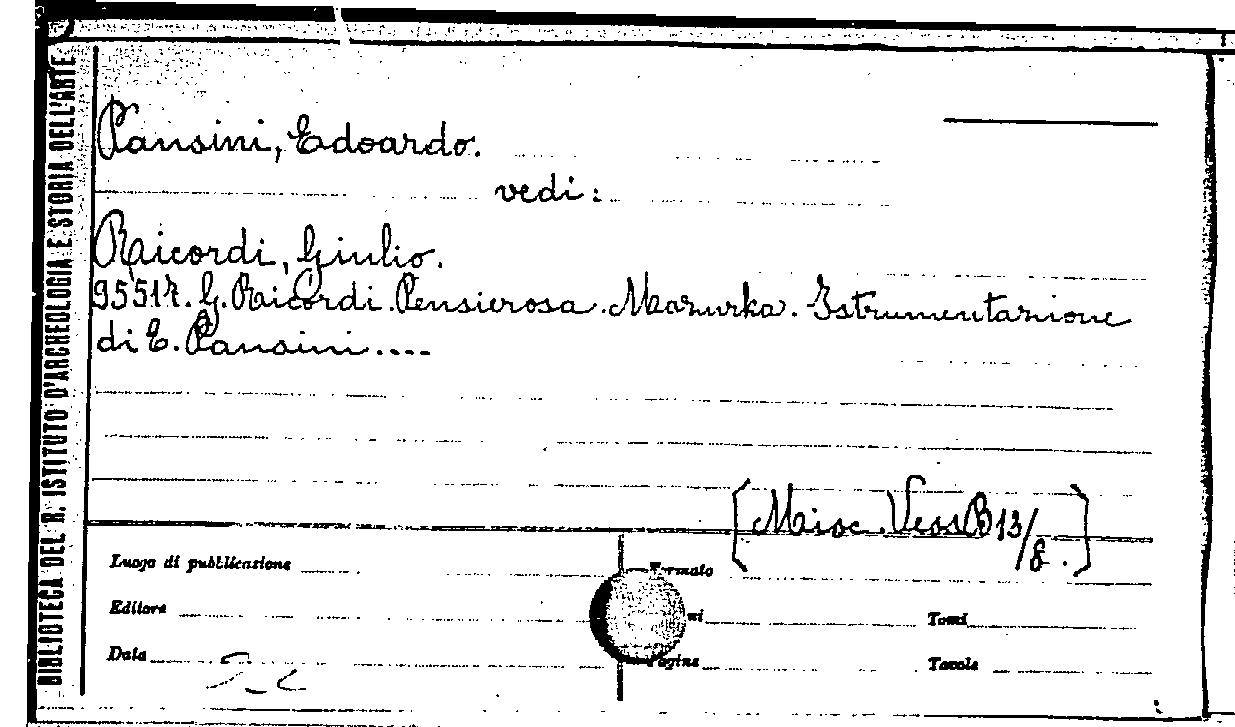 BIBLIOTECA DEL R. ISTITUTO D'ARCHEOLOGIA E STORIA DELL'ARTE
Pansini, Edoardo.
vedi:
Ricordi, Giulio.
95517. G. Ricordi. Pensierosa. Mazurka. Istrumentazione
di E. Pansini....
[Misc. Vess B 13/8.]
Luogo di pubblicazione
Formato
Editore
Tomi
Data
Pagine
Tavole